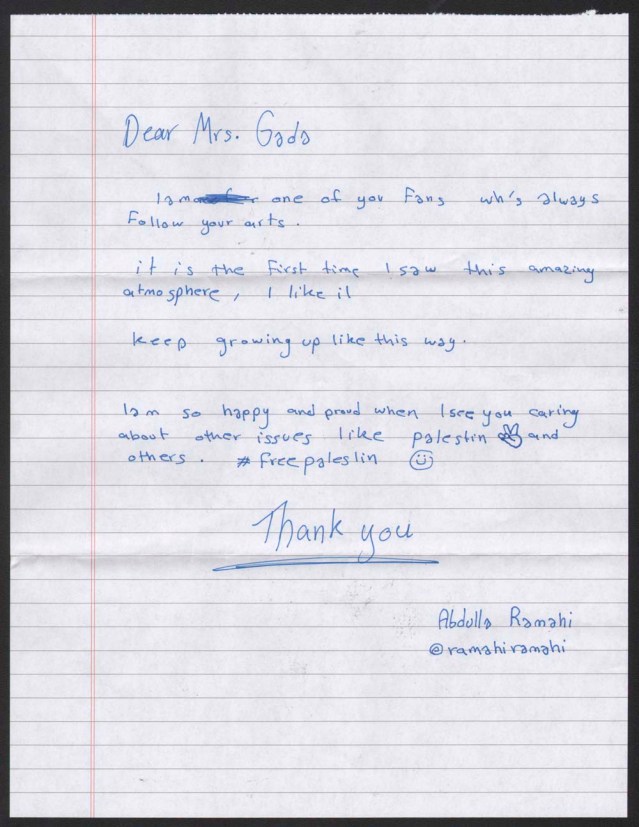 Dear Mrs. Gada
I am one of you Fans wh's always
Follow your arts.
it is the First time I saw this amazing
atmosphere, I like it
keep growing up like this way.
I am so happy and proud when I see you caring
about other issues like palestin and
others. # freepalestin
Thank you
Abdulla Ramahi
@ramahiramahi